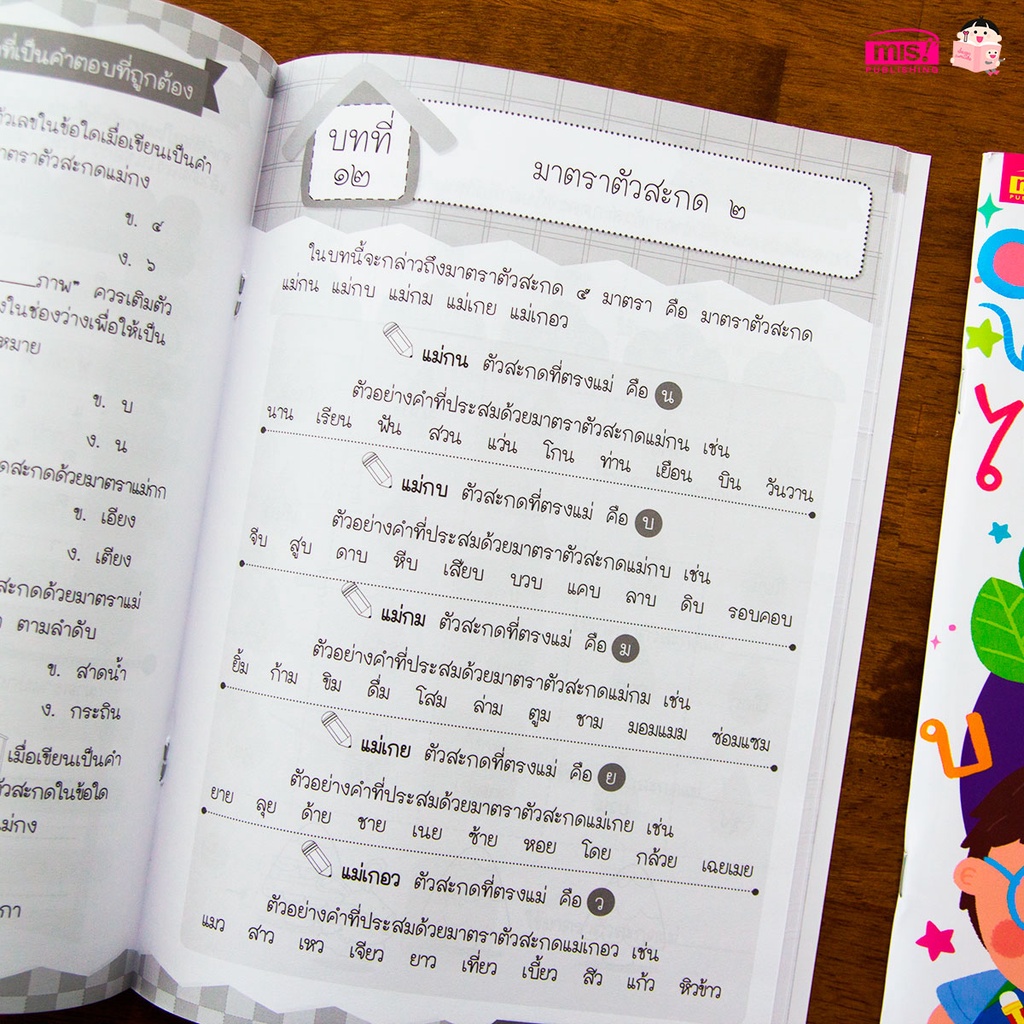 ที่เป็นคำตอบที่ถูกต้อง
ตัวเลขในข้อใดเมื่อเขียนเป็นคำ
มาตราตัวสะกดแม่กง
ข. ๔
ง. ๖
ภาพ" ควรเติมตัว
ในช่องว่างเพื่อให้เป็น
หมาย
ข. บ
ง. น
สะกดด้วยมาตราแม่กก
ข. เอียง
ง. เตียง
สะกดด้วยมาตราแม่
ตามลำดับ
ข. สาดน้ำ
ง. กระถิน
เมื่อเขียนเป็นคำ
ตัวสะกดในข้อใด
แม่กง
กา
บทที่
๑๒
มาตราตัวสะกด ๒
ในบทนี้จะกล่าวถึงมาตราตัวสะกด ๕ มาตรา คือ มาตราตัวสะกด
แม่กน แม่กบ แม่กม แม่เกย แม่เกอว
แม่กน ตัวสะกดที่ตรงแม่ คือ น
ตัวอย่างคำที่ประสมด้วยมาตราตัวสะกดแม่กน เช่น
นาน เรียน ฟัน สวน แว่น โกน ท่าน เยือน บิน วันวาน
แม่กบ ตัวสะกดที่ตรงแม่ คือ บ
ตัวอย่างคำที่ประสมด้วยมาตราตัวสะกดแม่กบ เช่น
จีบ สูบ ดาบ หีบ เสียบ บวบ แคบ ลาบ ดิบ รอบคอบ
แม่กม ตัวสะกดที่ตรงแม่ คือ ม
ตัวอย่างคำที่ประสมด้วยมาตราตัวสะกดแม่กม เช่น
ยิ้ม ก้าม ขิม ดื่ม โสม ล่าม ตูม ชาม มอมแมม ซ่อมแซม
แม่เกย ตัวสะกดที่ตรงแม่ คือ ย
ตัวอย่างคำที่ประสมด้วยมาตราตัวสะกดแม่เกย เช่น
ยาย ลุย ด้าย ชาย เนย ซ้าย หอย โดย กล้วย เฉยเมย
แม่เกอว ตัวสะกดที่ตรงแม่ คือ ว
ตัวอย่างคำที่ประสมด้วยมาตราตัวสะกดแม่เกอว เช่น
แมว สาว เหว เจียว ยาว เที่ยว เบี้ยว สิว แก้ว หิวข้าว
mis!
PUBLISHING
ไ
บ